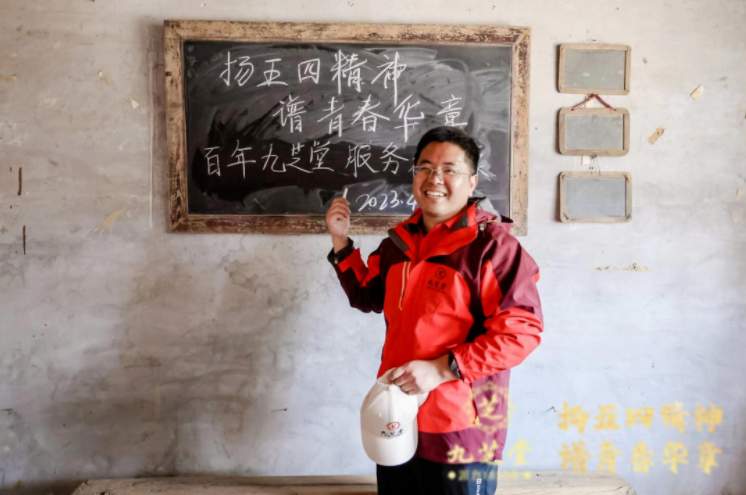 扬五四精神
谱青春华章
百年九芝堂 服务
2023.4
九芝堂
扬五四精神
九芝堂
谱青春华章